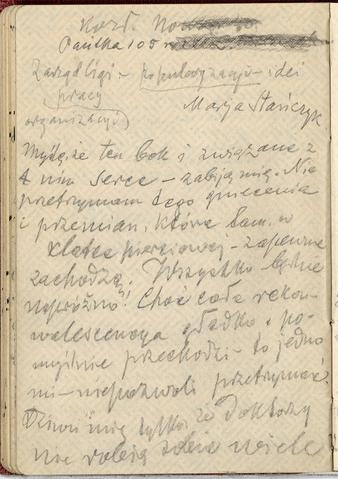 Pańska 105
Zarząd Ligi – popularyzacja idei
pracy
organizacji)
Marja Stańczyk
Myślę że ten bok i związane z
nim serce – zabiją mię. Nie
przetrzymam tego gniecenia
i przemian, które tam, w
klatce piersiowej – zapewne
zachodzą. Wszystko będzie
napróżno! Choć cała rekon-
walescencya gładko i po-
myślnie przechodzi – to jedno
mi – niepozwoli przetrzymać.
Dziwi mię tylko, że doktorzy
nie robią sobie wiele